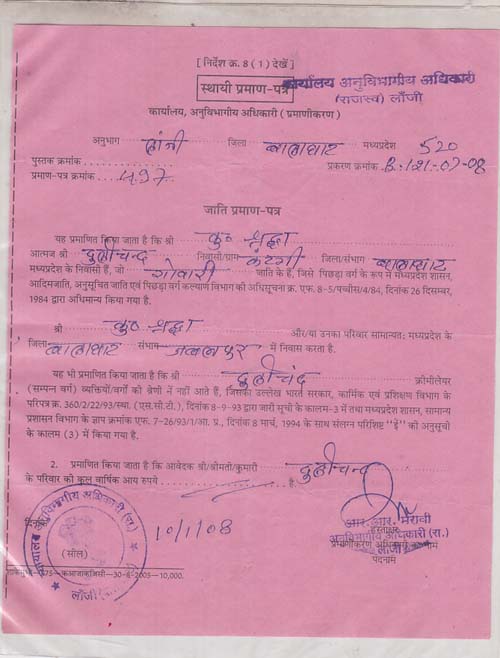 [ निर्देश क्र. 8 ( 1 ) देखें ]
स्थायी प्रमाण-पत्र
कार्यालय अनुविभागीय अधिकारी
(राजस्व) लाँजी
कार्यालय, अनुविभागीय अधिकारी ( प्रमाणीकरण )
अनुभाग लांजी जिला बालाघाट मध्यप्रदेश 520
पुस्तक क्रमांक प्रकरण क्रमांक B-121-07-08
प्रमाण-पत्र क्रमांक 497
जाति प्रमाण-पत्र
यह प्रमाणित किया जाता है कि श्री कु० श्रद्धा
आत्मज श्री दुलीचन्द निवासी/ग्राम जिला/संभाग बालाघाट
मध्यप्रदेश के निवासी हैं, जो गोवारी जाति के हैं, जिसे पिछड़ा वर्ग के रूप में मध्यप्रदेश शासन,
आदिमजाति, अनुसूचित जाति एवं पिछड़ा वर्ग कल्याण विभाग की अधिसूचना क्र. एफ. 8-5/पच्चीस/4/84, दिनांक 26 दिसम्बर,
1984 द्वारा अधिमान्य किया गया है.
श्री कु० श्रद्धा और/या उनका परिवार सामान्यतः मध्यप्रदेश के
जिला बालाघाट संभाग जबलपुर में निवास करता है.
यह भी प्रमाणित किया जाता है कि श्री दुलीचंद क्रीमीलेयर
(सम्पन्न वर्ग) व्यक्तियों/वर्गों की श्रेणी में नहीं आते हैं, जिसका उल्लेख भारत सरकार, कार्मिक एवं प्रशिक्षण विभाग के
परिपत्र क्र. 360/2/22/93/स्था. (एस.सी.टी.), दिनांक 8-9-93 द्वारा जारी सूची के कालम-3 में तथा मध्यप्रदेश शासन, सामान्य
प्रशासन विभाग के ज्ञाप क्रमांक एफ. 7-26/93/1/आ. प्र., दिनांक 8 मार्च, 1994 के साथ संलग्न परिशिष्ट "ई" की अनुसूची
के कालम (3) में किया गया है.
2. प्रमाणित किया जाता है कि आवेदक श्री/श्रीमती/कुमारी दुलीचन्द
के परिवार की कुल वार्षिक आय रुपये है.
दिनांक 10/1/08
(सील)
कार्यालय अनुविभागीय अधिकारी (रा.)
लाँजी
आर. आर. मेरावी
हस्ताक्षर
अनुविभागीय अधिकारी (रा.)
प्रमाणीकरण अधिकारी का नाम
लाँजी
पदनाम
30-8-2005—10,000.